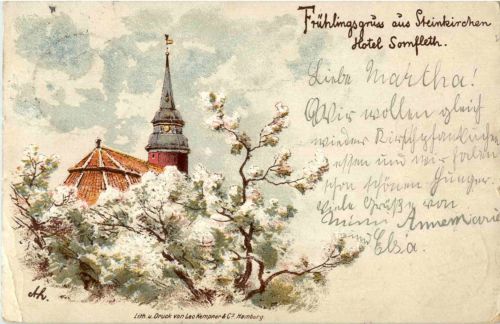 Frühlingsgruss aus Steinkirchen
Hotel Somfleth.
Liebe Martha!
Wir wollen gleich
wieder Kirschpfannkuchen
essen und wir haben
schon schönen Hunger.
Viele Grüße von
Annemarie
Elsa.
Lith. u. Druck von Leo Kempner & Co. Hamburg.